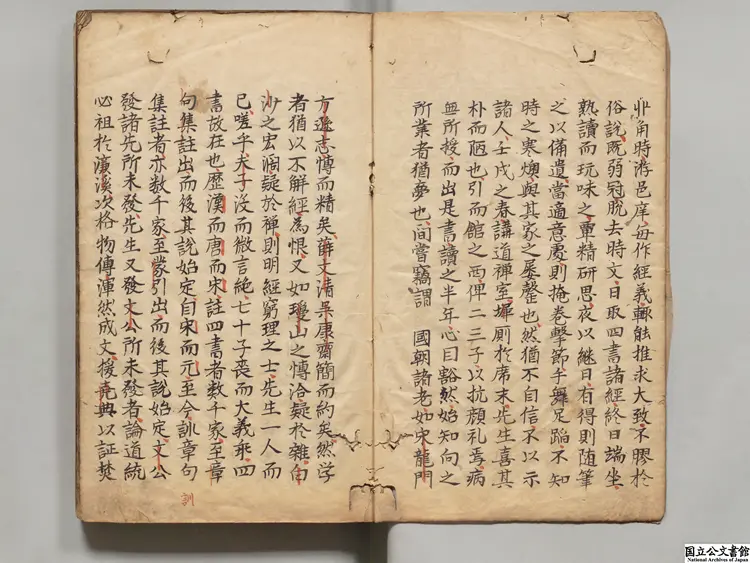 丱角時游邑庠每作經義輙能推求大致不膠於
俗說既弱冠脫去時文日取四書諸經終日端坐
熟讀而玩味之覃精研思夜以繼日有得則随筆
之以備遺當適意處則掩卷擊節手舞足蹈不知
時之寒燠與其家之屢罄也然猶不自信不以示
諸人壬戌之春講道禪室墀厠於席末先生喜其
朴而陋也引而館之西俾二三子以抗顔礼焉病
無所授而出是書讀之半年心目豁然始知向之
所業者猶夢也間嘗竊謂 國朝諸老如宋龍門
方遜志愽而精矣薛文清吴康齋簡而約矣然学
者猶以不解經為恨又如瓊山之愽洽疑於雜白
沙之宏濶疑於禪則明經窮理之士先生一人而
已嗟乎夫子沒而微言絶七十子喪而大義乖四
書故在也歴漢而唐而宋註四書者数千家至章
句集註出而後其說始定自宋而元至今訓章句
集註者亦数千家至蒙引出而後其說始定文公
發諸先所未發先生又發文公所未發者論道統
必祖於濂溪次格物傳渾然成文援堯典以証焚
訓
国立公文書館
National Archives of Japan